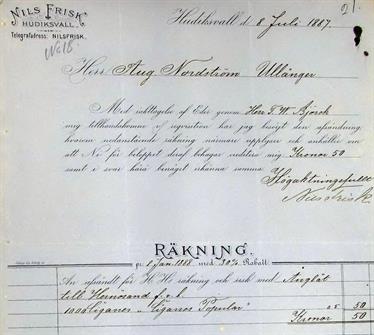 NILS FRISK
HUDIKSVALL.
Telegrafadress: NILSFRISK.
No 18
21.
Hudiksvall d. 8 Juli 1887.
Herr Aug. Nordström Ullånger
Med iakttagelse af Eder genom Herr F. W. Björck
mig tillhandakomne reqvisition har jag besörjt den afsändning,
hvarom nedanstående räkning närmare upplyser och anhåller om
att Ni för beloppet deraf behagar creditera mig Kronor 50
samt i svar härå benäget erkänna samma.
Högaktningsfullt
Nils Frisk
RÄKNING.
pr. 8 Jan. 1888 med 30% Rabatt.
An afsändt för H H räkning och risk med Ångbåt
till Hernösand f.v.b.
1000 Cigarrer "Cigarros Popular" 50
Kronor 50